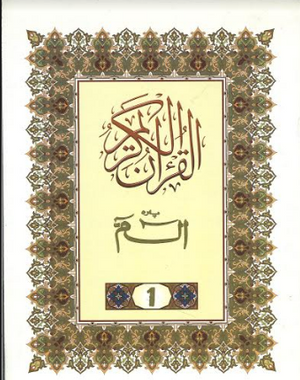 القرآن الكريم
پاره
الٓمٓ
1